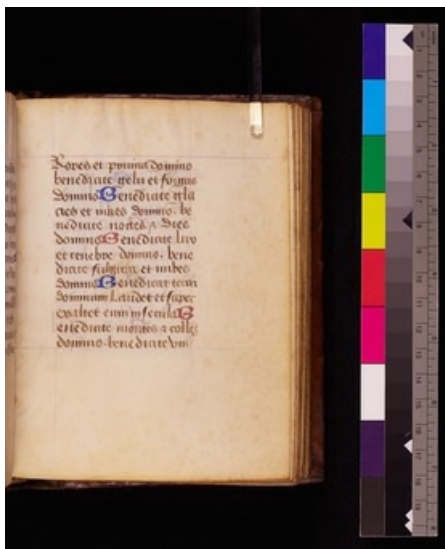 Rores et pruina domino
benedicite gelu et frigus
domino Benedicite gla
cies et nives domino. be
nedicite noctes & dies
domino Benedicite lux
et tenebre domino. bene
dicite fulgura et nubes
domino Benedicat terra
dominum Laudet et super
exaltet eum in secula B
enedicite montes & colles
domino. benedicite